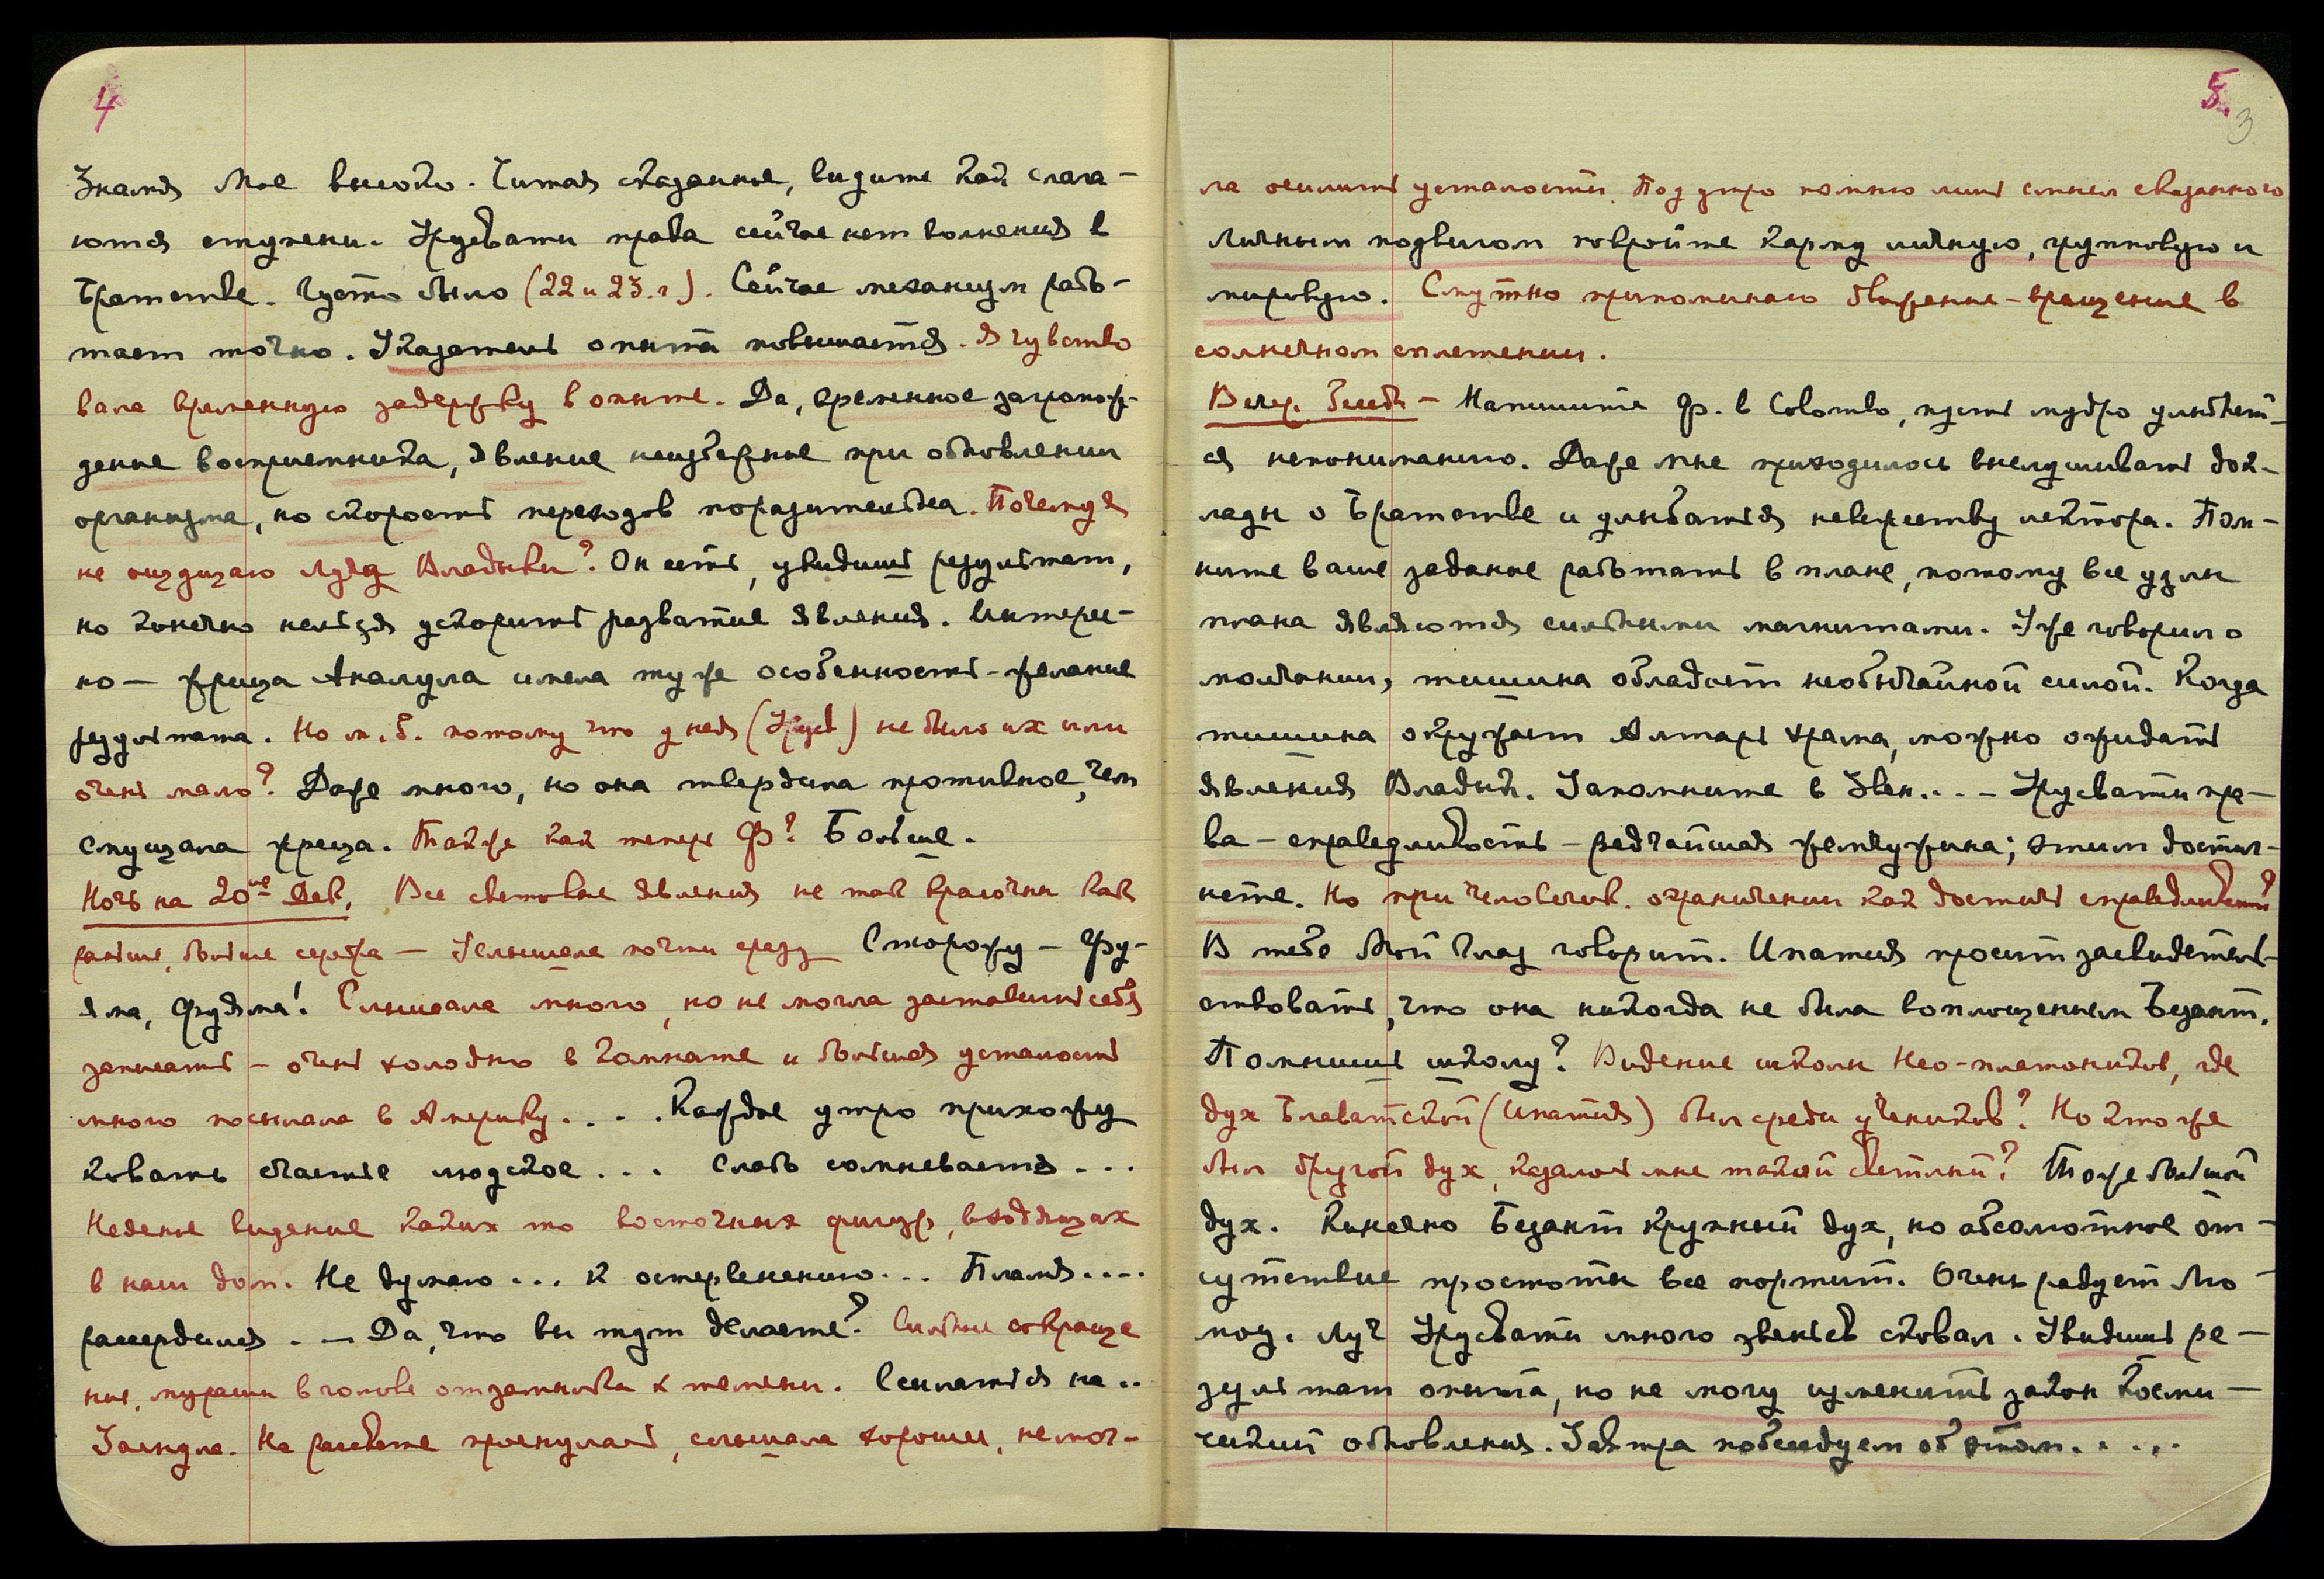 4
Знамя Мое высоко. Читая сказанное, видите как слага-
ются ступени. Урусвати права сейчас нет волнения в
Братстве. Густо было (22 и 23.г). Сейчас механизм рабо-
тает точно. Указатель опыта повышается. Я чувство
вала временную задержку в опыте. Да, временное загромож-
дение восприемника, явление неизбежное при обновлении
организма, но скорость переходов поразительна. Почему я
не ощущаю Луча Владыки? Он есть, увидишь результат,
но конечно нельзя ускорить развитие явления. Интерес-
но — жрица Аналула имела ту же особенность - желание
результата. Но м. б. потому что у нея (Урусв) не было их или
очень мало? Даже много, но она твердила противное, чем
смущала жреца. Также как теперь Ф? Больше.
Ночь на 20ое Дек. Все световые явления не так красочны как
раньше, больше серебра — Услышала почти сразу Сторожу — Фу-
яма, Фудяма! Слышала много, но не могла заставить себя
записать — очень холодно в комнате и большая усталость
много посылала в Америку. . . . Каждое утро прихожу
ковать счастье людское . . . Слабо сомневается . . .
Неясное видение каких то восточных фигур, входящих
в наш дом. Не думаю ... К остервенению... Пламя....
рассердился . — Да, что вы тут делаете? Сильные сокраще
ния, мураши в голове от затылка к темени. Ссылаться на ..
Заснула. На рассвете проснулась, слышала хорошо, не мог-
5.
3
ла осилить усталости. Под утро помню лишь смысл сказанного
Личным подвигом покройте карму личную, групповую и
мировую. Смутно припоминаю движение-вращение в
солнечном сплетении.
Вечер. Беседа — Напишите Ф. в Colombo, пусть мудро улыбнет-
ся непониманию. Даже мне приходилось выслушивать док-
лады о Братстве и улыбаться невежеству лектора. Пом-
ните ваше задание работать в плане, потому все узлы
плана являются сильными магнитами. Уже говорил о
молчании, тишина обладает необычайной силой. Когда
тишина окружает Алтарь храма, можно ожидать
явления Владык. Запомните в Звен.. . — Урусвати пра-
ва — справедливость — редчайшая жемчужина; этим достиг-
нете. Но при человечск. ограничении как достичь справедливости?
В тебе Мой Глаз говорит. Ипатия просит засвидетель-
ствовать, что она никогда не была воплощением Безант.
Помнишь школу? Видение школы Нео-платоников, где
дух Блаватской (Ипатия) был среди учеников? Но кто же
был другой дух, казалось мне такой светлый? Тоже большой
дух. Конечно Безант крупный дух, но абсолютное от-
сутствие простоты все портит. Очень радует Мо-
мой. Луч Урусвати много звеньев сковал. Увидишь ре-
зультат опыта, но не могу изменить закон Косми-
ческий обновления. Завтра побеседуем об этом. . . . .